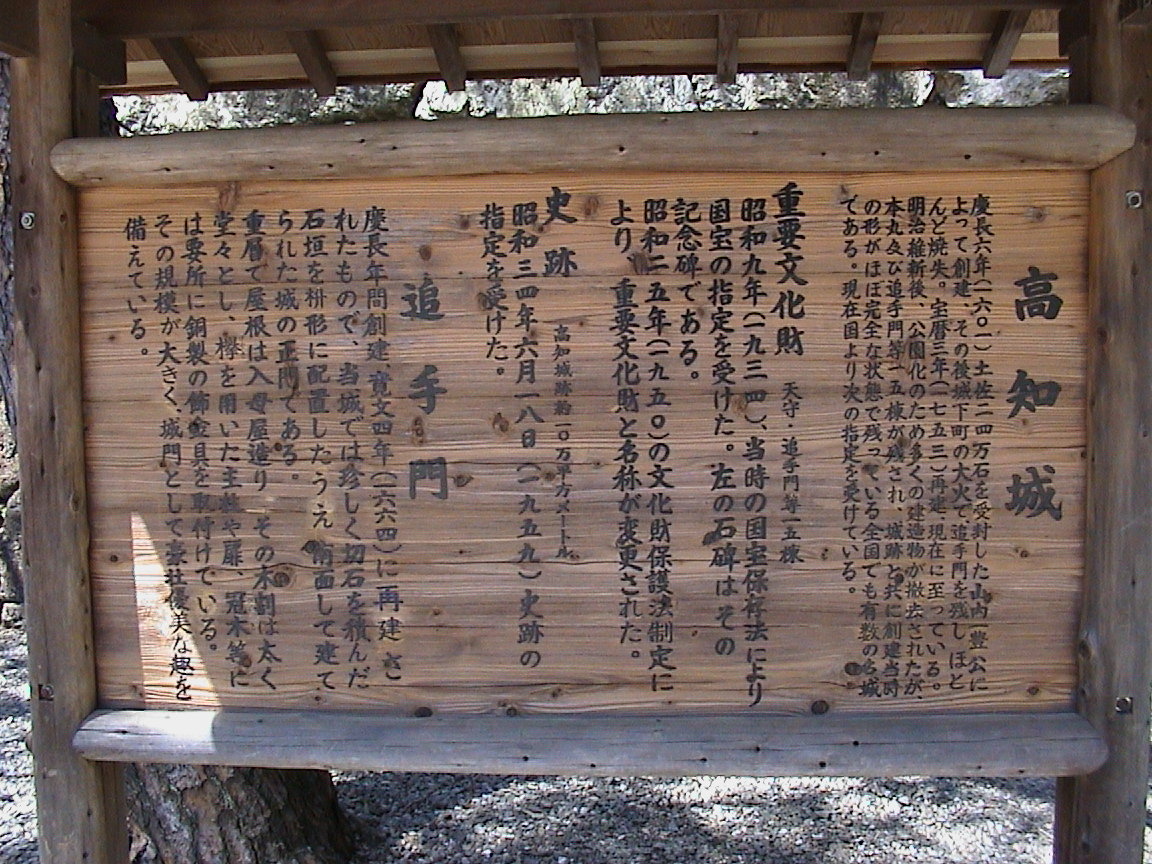 高知城
慶長六年(一六〇一)土佐二四万石を受封した山内一豊公に
よって創建、その後城下町の大火で追手門を残しほと
んど焼失。宝暦三年(一七五三)再建、現在に至っている。
明治維新後、公園化のため多くの建造物が撤去されたが、
本丸及び追手門等一五棟が残され、城跡と共に創建当時
の形がほぼ完全な状態で残っている全国でも有数の名城
である。現在国より次の指定を受けている。
重要文化財 天守・追手門等一五棟
昭和九年(一九三四)、当時の国宝保存法により
国宝の指定を受けた。左の石碑はその
記念碑である。
昭和二五年(一九五〇)の文化財保護法制定に
より、重要文化財と名称が変更された。
史跡 高知城跡約一〇万平方メートル
昭和三四年六月一八日(一九五九)史跡の
指定を受けた。
追手門
慶長年間創建、寛文四年(一六六四)に再建さ
れたもので、当城では珍しく切石を積んだ
石垣を枡形に配置したうえ、南面して建て
られた城の正門である。
重層で屋根は入母屋造り、その木割は太く
堂々とし、欅を用いた主柱や扉、冠木等に
は要所に銅製の飾金具を取付けている。
その規模が大きく、城門として豪壮優美な趣を
備えている。